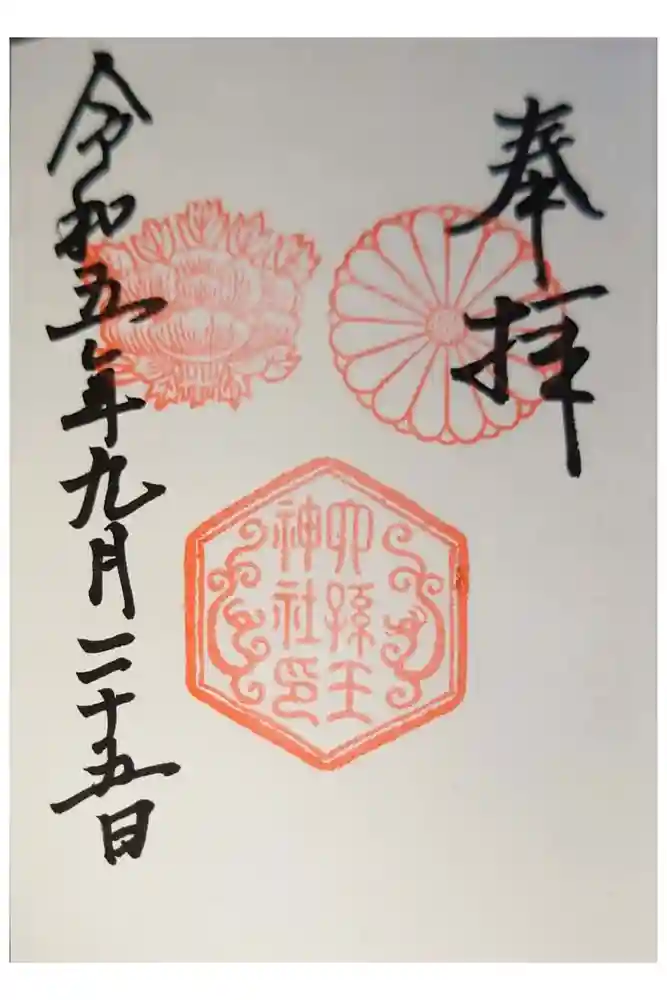 奉拝
六孫王
神社印
令和五年九月二十五日